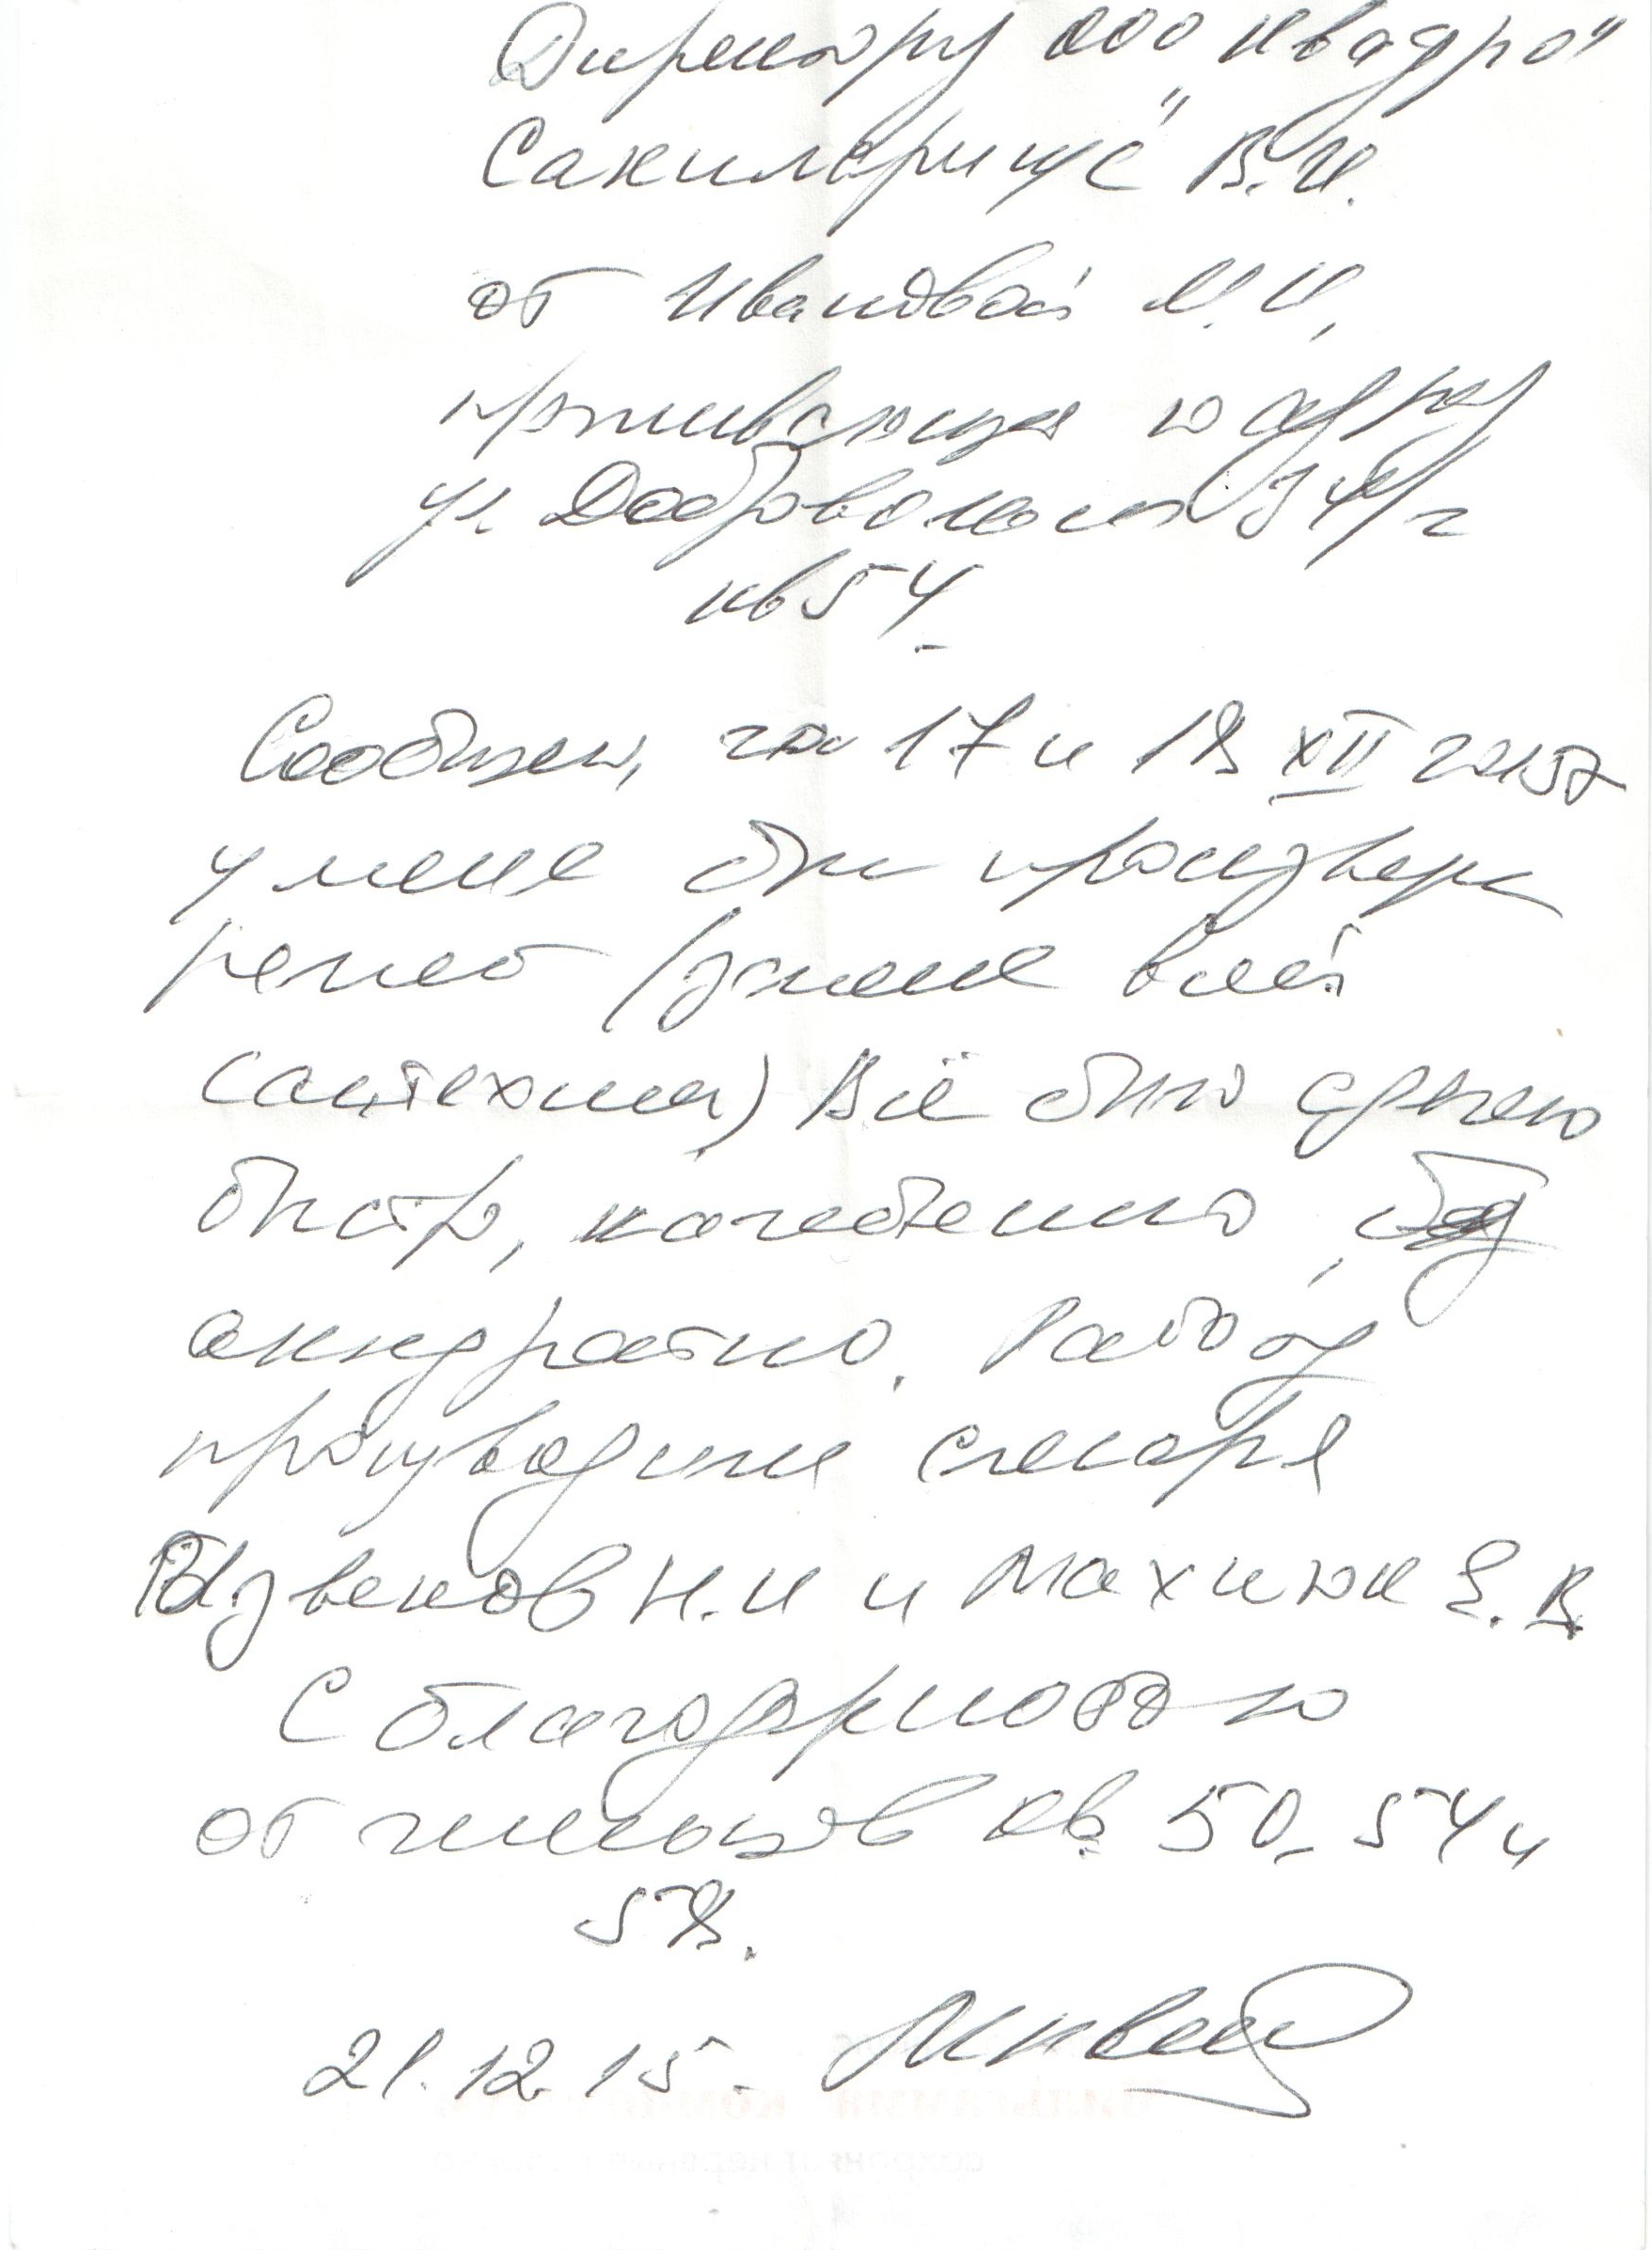 Директору ООО „Квадро"
В.И.
от Ивановой М.И,
проживающая по адресу
ул. Добровольск 34/2
кв 54
Сообщаю, что 17 и 18 XII 2015г
у меня был произведен
ремонт (замена всей
сантехники) Всё было сделано
быстро, качественно,
аккуратно. Работу
производили слесаря
Извеков Н.И и Махинюк Е.В.
С благодарностью
от жильцов кв. 50, 54 и
58.
21.12.15.